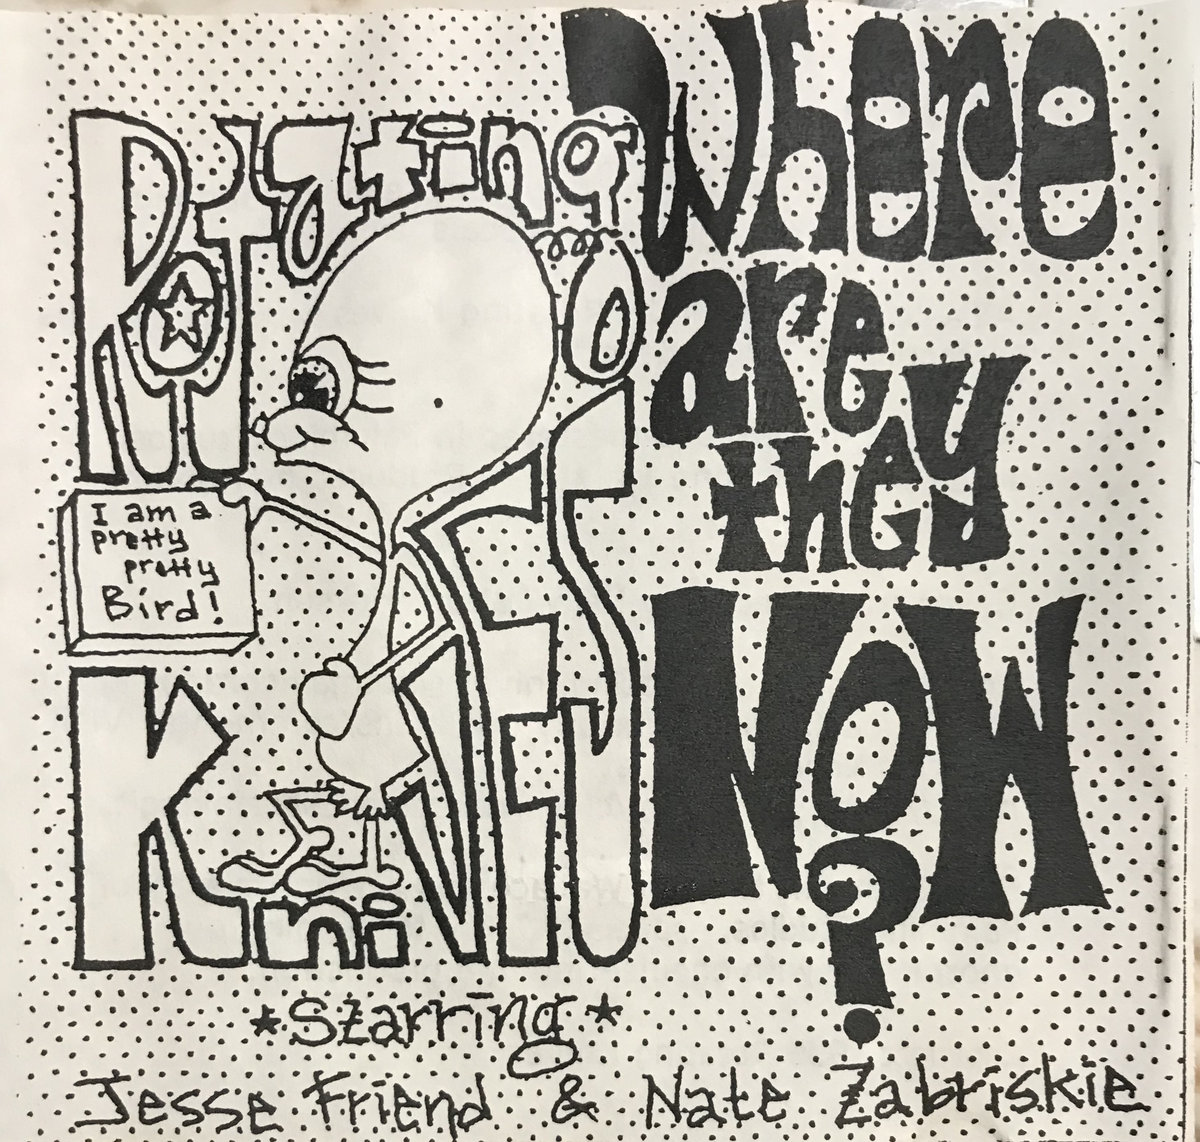 Rotating
Knives
Where
are
they
NOW
?
I am a
pretty
pretty
Bird!
*Starring*
Jesse Friend & Nate Zabriskie